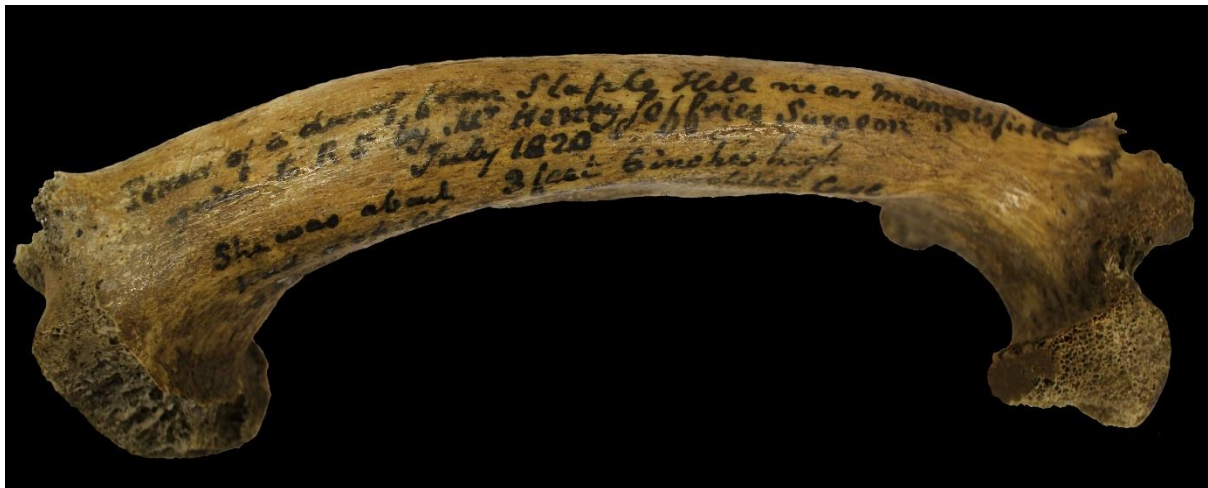 Femur of a dwarf from Staple Hill near Mangotsfield
given to R S by Mr Henry Jeffries Surgeon
July 1820
She was about 3 feet 6 inches high
Case